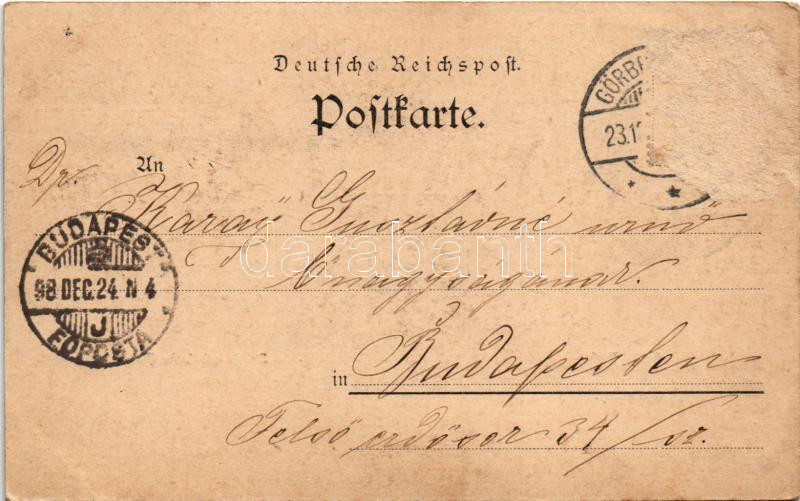 Deutsche Reichspost.
Postkarte.
GÖRBE
23.12
An
Dr. Karay Gusztávné urnő
Őnagyságának
in Budapesten
Felső erdősor 34/sz.
BUDAPEST
98 DEC. 24. N 4
J
FŐPOSTA
darabanth